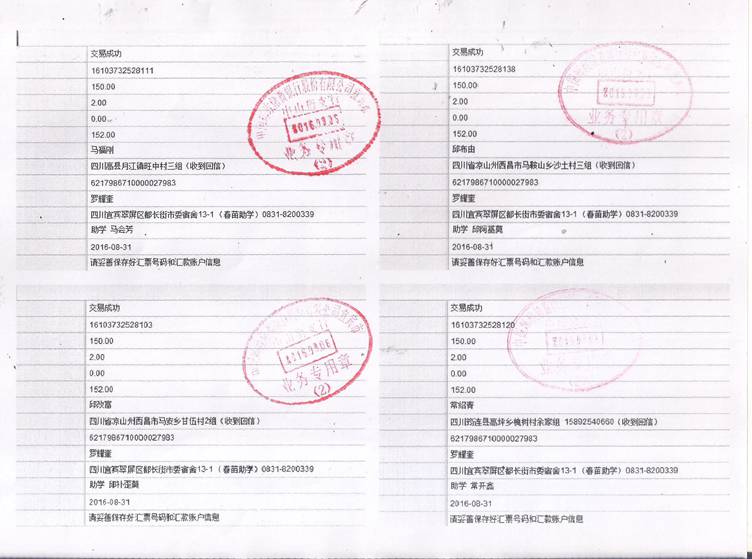 交易成功
16103732528111
150.00
2.00
0.00
152.00
马猫刚
四川高县月江镇旺中村三组(收到回信)
6217986710000027983
罗耀奎
四川宜宾翠屏区都长街市委宿舍13-1(春苗助学)0831-8200339
助学 马会芳
2016-08-31
请妥善保存好汇票号码和汇款账户信息
业务专用章
(2)
交易成功
16103732528138
150.00
2.00
0.00
152.00
邱布由
四川省凉山州西昌市马鞍山乡沙土村三组(收到回信)
6217986710000027983
罗耀奎
四川宜宾翠屏区都长街市委宿舍13-1(春苗助学)0831-8200339
助学 邱阿基莫
2016-08-31
请妥善保存好汇票号码和汇款账户信息
业务专用章
(2)
交易成功
16103732528103
150.00
2.00
0.00
152.00
邱改富
四川省凉山州西昌市马安乡甘伍村2组(收到回信)
6217986710000027983
罗耀奎
四川宜宾翠屏区都长街市委宿舍13-1(春苗助学)0831-8200339
助学 邱补歪莫
2016-08-31
请妥善保存好汇票号码和汇款账户信息
业务专用章
(2)
交易成功
16103732528120
150.00
2.00
0.00
152.00
常绍青
四川筠连县高坪乡桃树村余家组 15892540660(收到回信)
6217986710000027983
罗耀奎
四川宜宾翠屏区都长街市委宿舍13-1(春苗助学)0831-8200339
助学 常开鑫
2016-08-31
请妥善保存好汇票号码和汇款账户信息